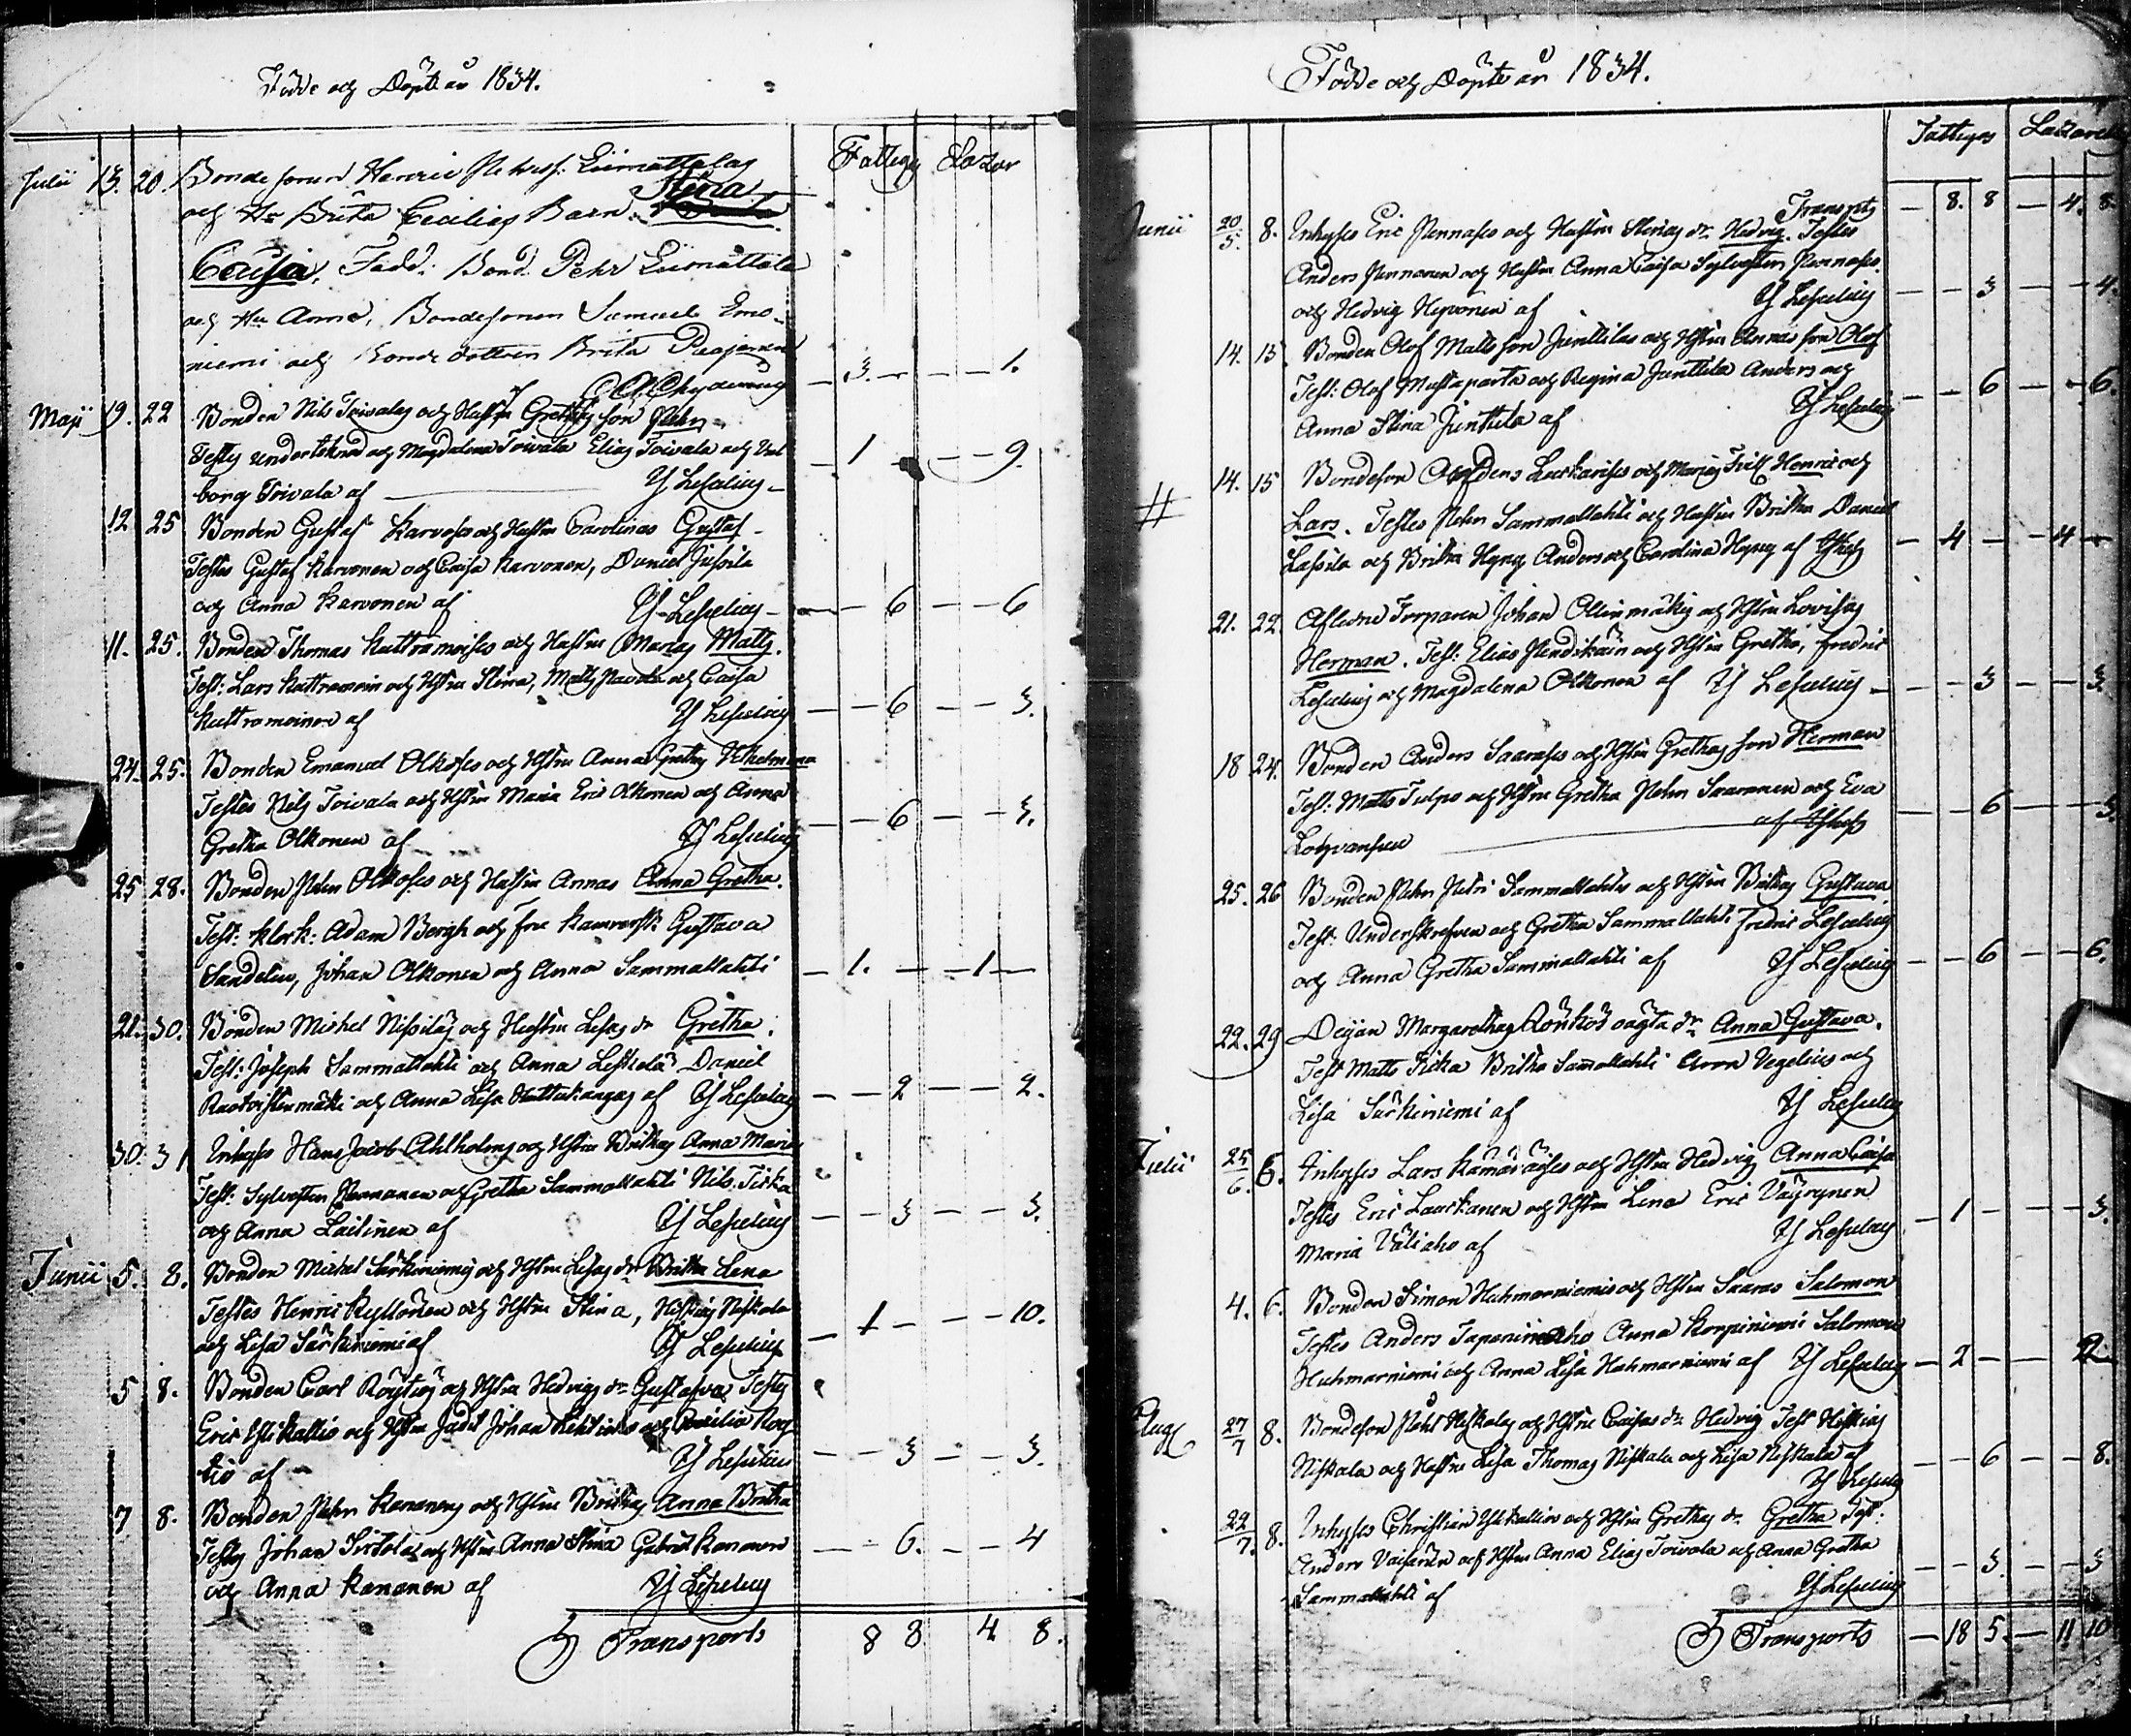 Födde och Döpte år 1834.
Fattigs Lazar
Julii 13. 20. Bondesonen Henric Liimattalas
och Hu Brita Cecilias Barn Stina
Caisa, Fadd: Bond. Pehr Liimattala
och Hu Anna, Bondesonen Samuel Emo-
niemi och Bondedottren Brita Paajanen
af — 3. — — — 1.
Maji 19. 22 Bonden Nils Toivalas och Hustrn Grethas son Pehr
Testes underteknad och Magdalena Toivala Elias Toivala och Val
borg Toivala af Y Leseelius — 1 — — — 9.
12 25 Bonden Gustaf Karvoses och Hustrn Carolinas Gustaf
Testes Gustaf Karvonen och Caisa Karvonen, Daniel Jussila
och Anna Karvonen af Y Leseelius — — 6 — — 6
11. 25. Bonden Thomas Kuttramoises och Hustrns Marias Matts.
Test: Lars Kuttramoin och Hstru Stina, Matts Paavola och Caisa
Kuttramoinen af Y Leseelius — — 6 — — 3.
24. 25. Bonden Emanuel Olkoses och Hstrn Anna Grethas Vilhelmina
Testes Nils Toivala och Hstrn Maria Eric Olkonen och Anna
Gretha Olkonen af Y Leseelius — — 6 — — 3.
25 28. Bonden Pehr Olkoses och Hustrn Annas Anna Gretha.
Test: Klock: Adam Bergh och fru Gustava
Sandelin, Johan Olkonen och Anna Sammallahti — 1. — — 1 —
21. 30. Bonden Michel Nissiläs och Hustrn Lisas dr Gretha.
Test: Joseph Sammallahti och Anna Leskelä Daniel
och Anna Lisa af Y Leseelius — — 2 — — 2.
30. 31 Inhyses Hans Jacob Ahlholms och Hstrn Brithas Anna Maria
Test: Sylvester Pennanen och Gretha Sammallahti Nils Tiska
och Anna Laitinen af Y Leseelius — — 3 — — 3.
Junii 5. 8. Bonden Michel Särkiniemis och Hstrn Lisas dr Britha Lena
Testes Henric Kyllönen och Hstrn Stina, Niskala
och Lisa Särkiniemi af Y Leseelius — 1 — — — 10.
5 8. Bonden Carl och Hstrn Hedvigs dr Gustafva Testes
Eric Ylikallio och Hstrn Johan och Cecilia
tiö af Y Leseelius — — 3 — — 3.
7 8. Bonden Pehr Kananens och Hstrn Brithas Anna Britha
Testes Johan Sirtola och Hstrn Anna Stina Gabriel Kananen
och Anna Kananen af Y Leseelius — — 6. — — 4
Transports 8 8 4 8.
Födde och Döpte år 1834.
Fattiges Lazarett
Transpts — 8. 8 — 4. 8.
Junii 20/5 8. Inhyses Eric Pennases och Hustrn Stinas dr Hedvig. Testes
Anders Pennanen och Hustrn Anna Caisa Sylvester Pennases
och Hedvig Heponen af Y Leseelius — — 3 — — 4.
14. 15 Bonden Olof Mattsson Junttilas och Hstrn Annas son Olof
Test: Olof Mustaparta och Regina Junttila Anders och
Anna Stina Junttila af Y Leseelius — — 6 — — 6.
# 14. 15 Bondeson Anders Laukarises och Marias Henric och
Lars. Testes Pehr Sammallahti och Hustrn Britha Daniel
Lassila och Britha Hyry Anders och Carolina Hyry af — 4 — — 4 —
21. 22 Afledne Torparen Johan Ollinmäkis och Hstrn Lovisas
Herman. Test: Elias Hendikäin och Hstrn Gretha, Fredric
Leseelius och Magdalena Olkonen af Y Leseelius — — 3 — — 3.
18 24. Bonden Anders Saarases och Hstrn Grethas son Herman
Test: Matts Tulpo och Hstrn Gretha Pehr Saaranen och Eva
af — — 6 — — 3.
25. 26 Bonden Pehr Petri Sammallahtis och Hstrn Brithas Gustava
Test: Underskrefven och Gretha Sammallahti Fredric Leseelius
och Anna Gretha Sammallahti af Y Leseelius — — 6 — — 6.
22. 29 Pigan Margarethas Rönkös oägta dr Anna Gustava.
Test Matts Tiska Britha Samallahti Aron Vegelius och
Lisa Särkiniemi af Y Leseelius
Julii 25/6. 6. Inhyses Lars Kämäräises och Hstrn Hedvigs Anna Caisa
Testes Eric Laurkanen och Hstrn Lena Eric Väyrynen
Maria Väliaho af Y Leseelius — 1 — — — 3.
4. 6. Bonden Simon Huhmarniemis och Hstrn Saaras Salomon
Testes Anders Tapaninaho Anna Korpiniemi Salomon
Huhmarniemi och Anna Lisa Huhmarniemi af Y Leseelius — 2 — — 2
Aug 27/7 8. Bondeson Pehr Niskalas och Hstrn Caisas dr Hedvig Test
Niskala och Hustru Lisa Thomas Niskala och Lisa Niskala af
Y Leseelius — — 6 — — 8.
22/7. 8. Inhyses Christian Ylikallios och Hstrn Grethas dr Gretha Test:
Anders Väisänen och Hstrn Anna Elias Toivola och Anna Gretha
Sammallahti af Y Leseelius — — 3 — — 3
Transports — 18 5. — 11 10